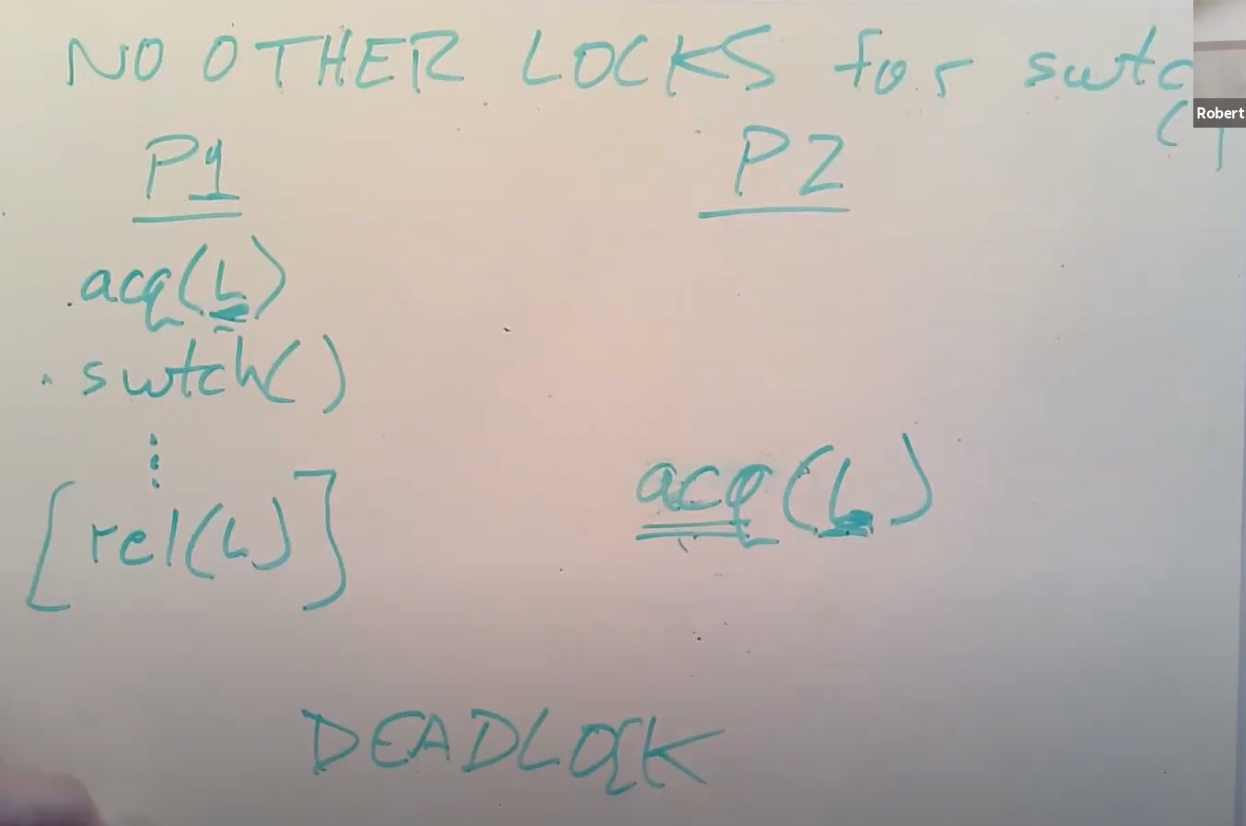 NO OTHER LOCKS for swtc
Robert
P1 P2
acq(L)
swtch()
acq(L)
[rel(L)]
DEADLOCK